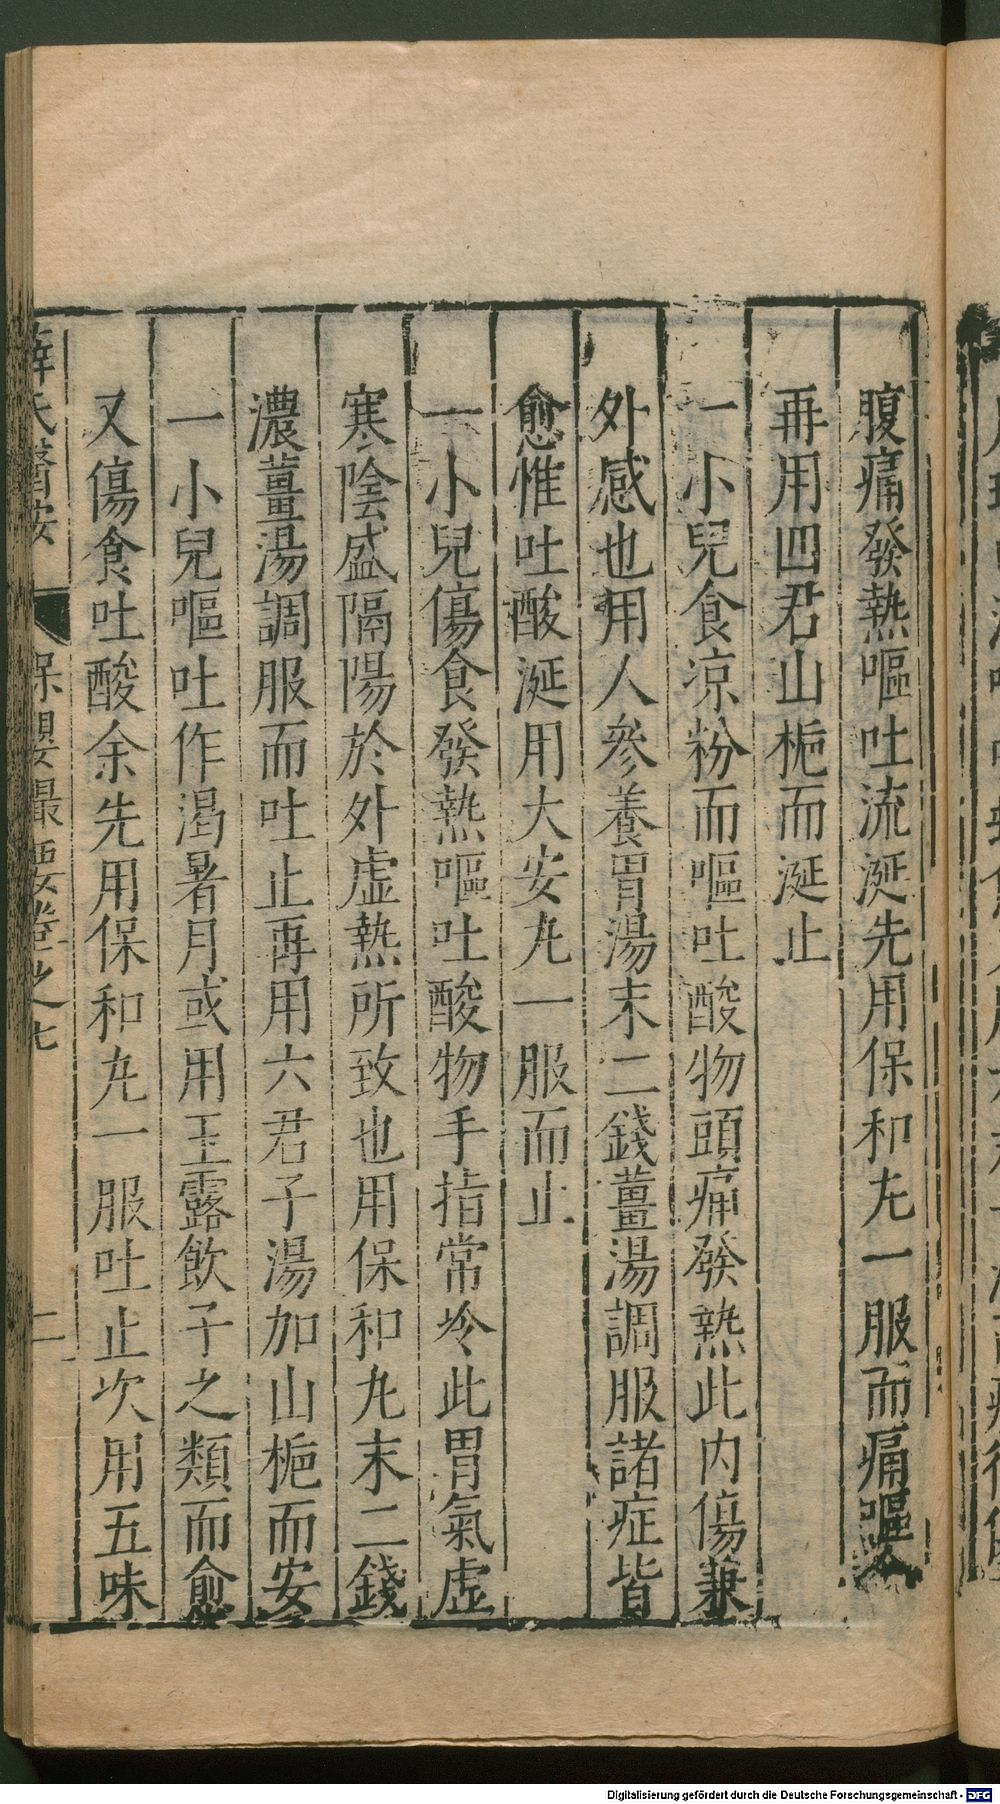 腹痛發熱嘔吐流涎先用保和丸一服而痛嘔
再用四君山梔而涎止
一小兒食凉粉而嘔吐酸物頭痛發熱此内傷兼
外感也用人參養胃湯末二錢薑湯調服諸症皆
愈惟吐酸涎用大安丸一服而止
一小兒傷食發熱嘔吐酸物手指常冷此胃氣虛
寒陰盛隔陽於外虛熱所致也用保和丸末二錢
濃薑湯調服而吐止再用六君子湯加山梔而安
一小兒嘔吐作渴暑月或用玉露飲子之類而愈
又傷食吐酸余先用保和丸一服吐止次用五味
薛氏醫按 保嬰撮要卷之七 二
Digitalisierung gefördert durch die Deutsche Forschungsgemeinschaft - DFG